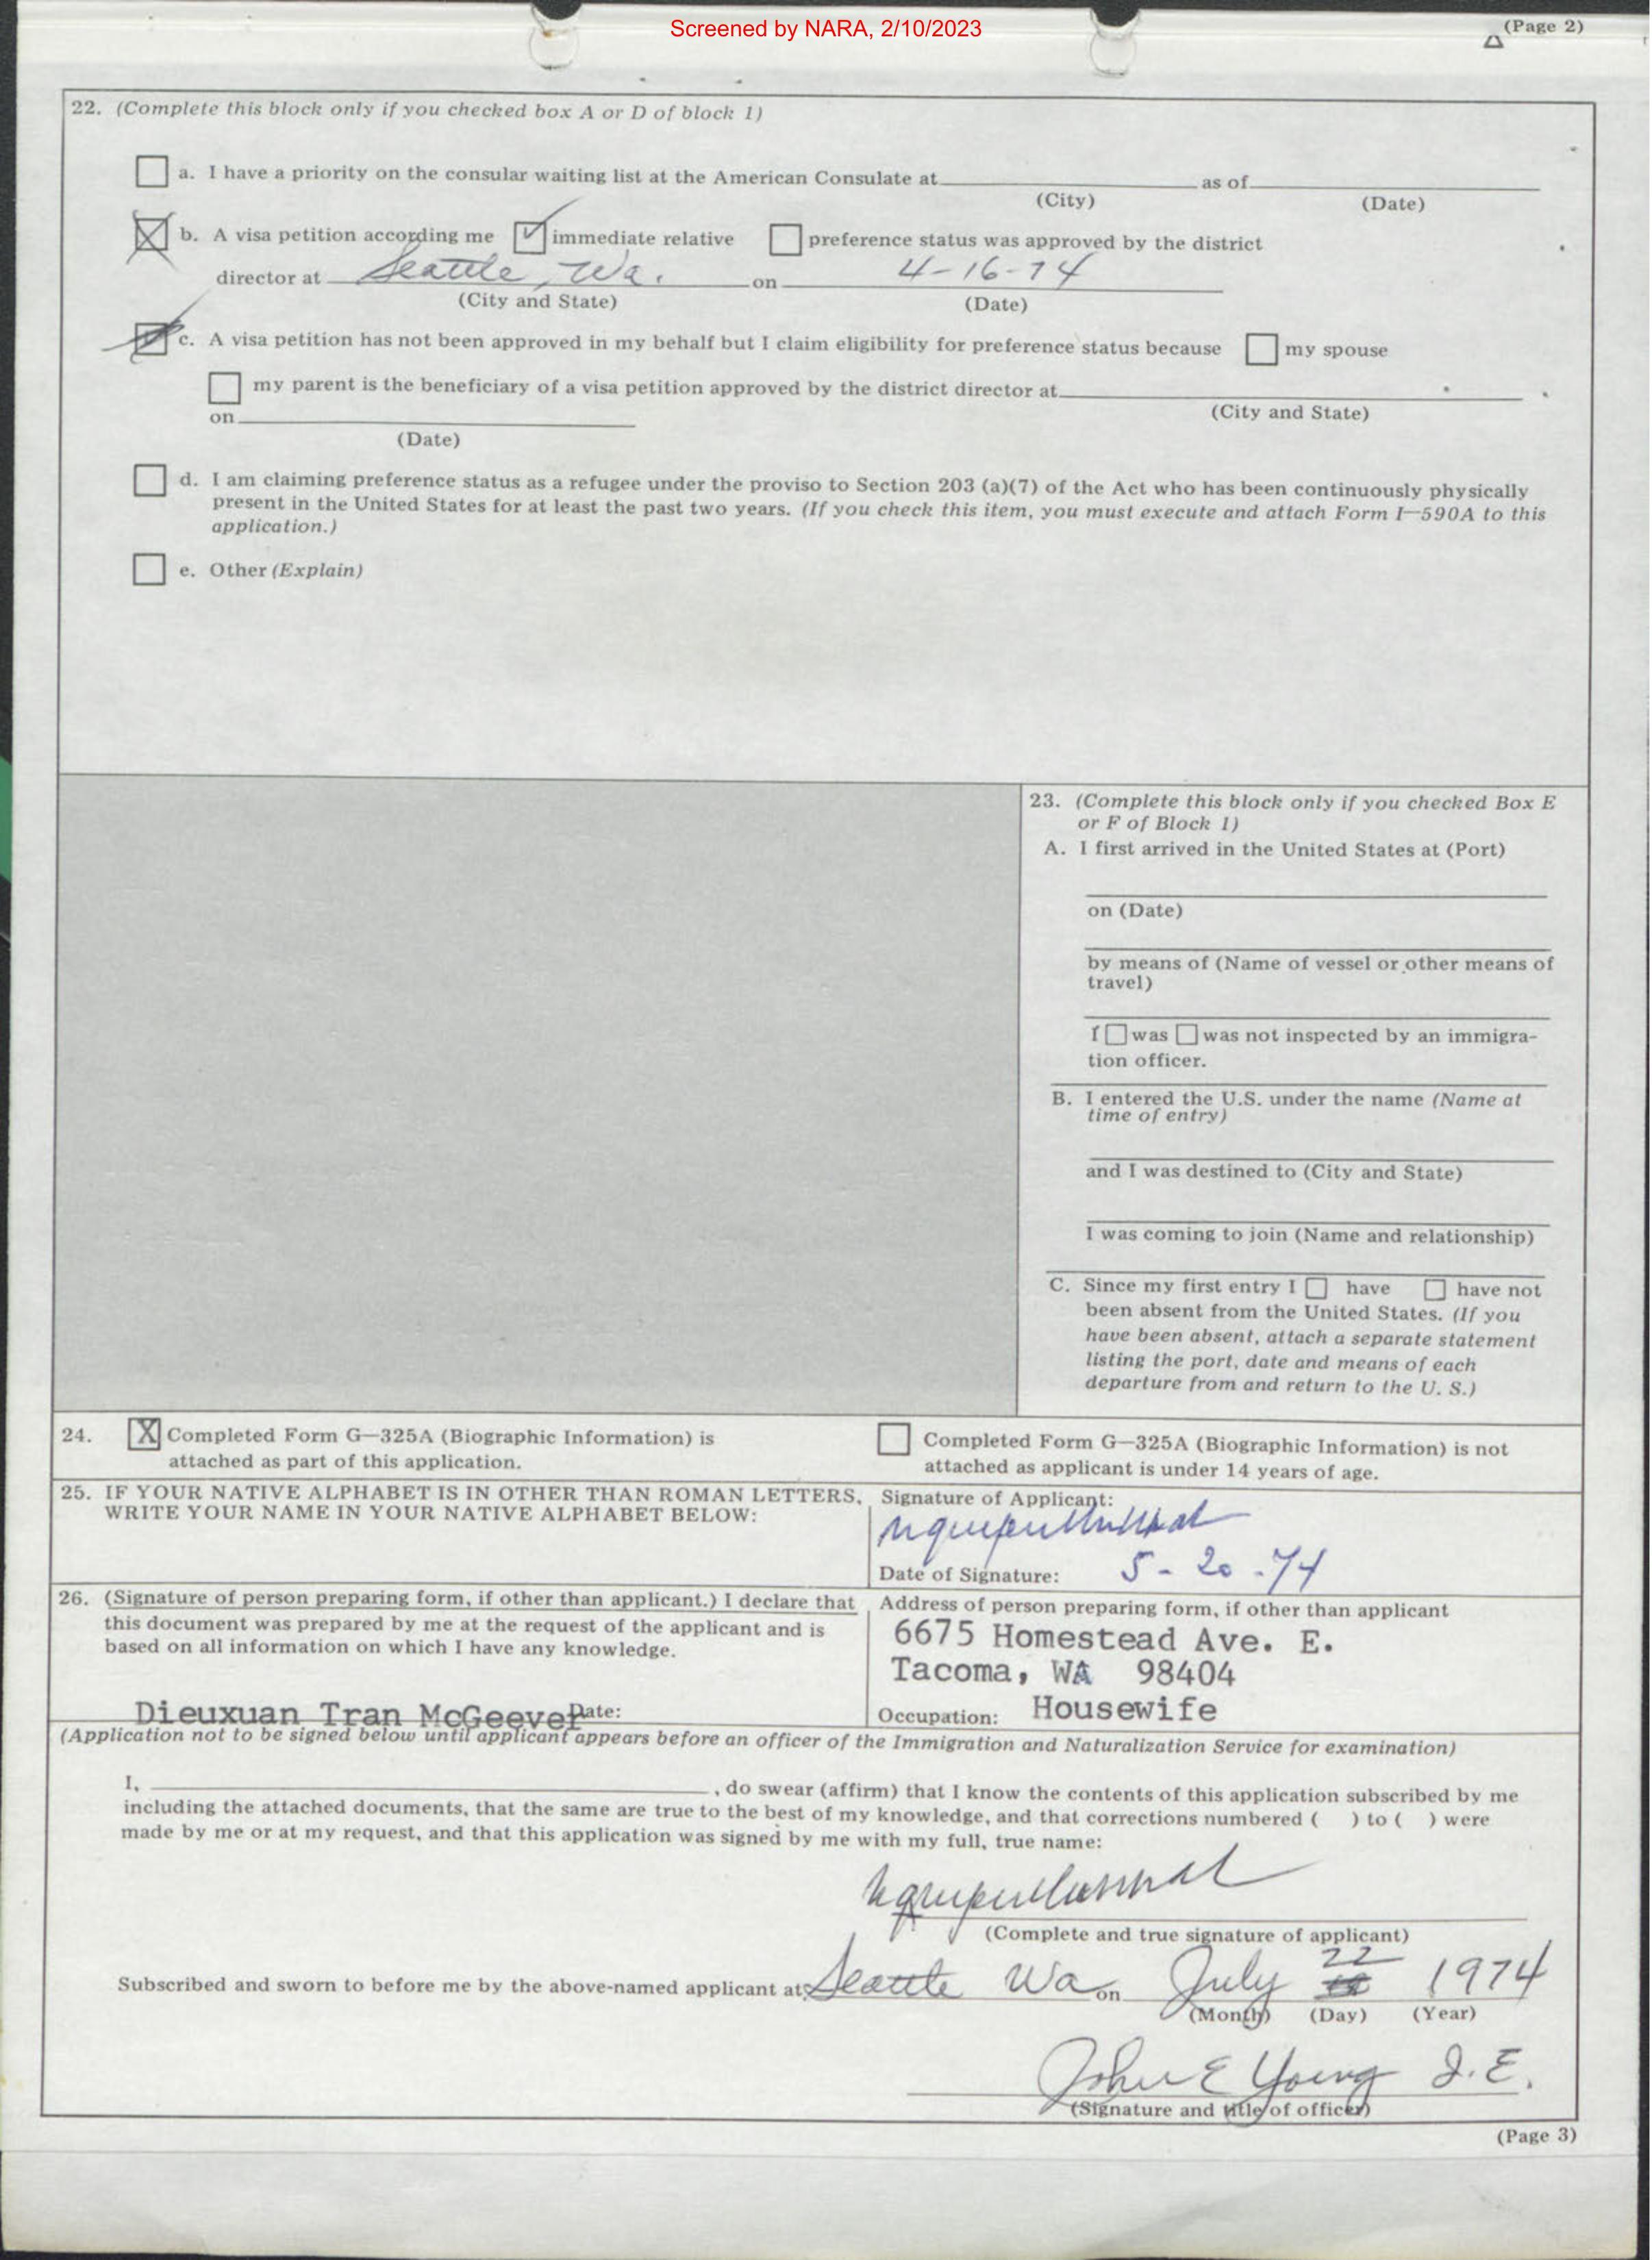 Screened by NARA, 2/10/2023
(Page 2)
22. (Complete this block only if you checked box A or D of block 1)
a. I have a priority on the consular waiting list at the American Consulate at as of
(City) (Date)
b. A visa petition according me immediate relative preference status was approved by the district
director at Seattle, Wa. on 4-16-74
(City and State) (Date)
c. A visa petition has not been approved in my behalf but I claim eligibility for preference status because my spouse
my parent is the beneficiary of a visa petition approved by the district director at
(City and State)
on
(Date)
d. I am claiming preference status as a refugee under the proviso to Section 203 (a)(7) of the Act who has been continuously physically
present in the United States for at least the past two years. (If you check this item, you must execute and attach Form I—590A to this
application.)
e. Other (Explain)
23. (Complete this block only if you checked Box E
or F of Block 1)
A. I first arrived in the United States at (Port)
on (Date)
by means of (Name of vessel or other means of
travel)
I was was not inspected by an immigra-
tion officer.
B. I entered the U.S. under the name (Name at
time of entry)
and I was destined to (City and State)
I was coming to join (Name and relationship)
C. Since my first entry I have have not
been absent from the United States. (If you
have been absent, attach a separate statement
listing the port, date and means of each
departure from and return to the U. S.)
24. X Completed Form G—325A (Biographic Information) is
attached as part of this application.
Completed Form G—325A (Biographic Information) is not
attached as applicant is under 14 years of age.
25. IF YOUR NATIVE ALPHABET IS IN OTHER THAN ROMAN LETTERS,
WRITE YOUR NAME IN YOUR NATIVE ALPHABET BELOW:
Signature of Applicant:
Date of Signature: 5-20-74
26. (Signature of person preparing form, if other than applicant.) I declare that
this document was prepared by me at the request of the applicant and is
based on all information on which I have any knowledge.
Dieuxuan Tran McGeever Date:
Address of person preparing form, if other than applicant
6675 Homestead Ave. E.
Tacoma, WA 98404
Occupation: Housewife
(Application not to be signed below until applicant appears before an officer of the Immigration and Naturalization Service for examination)
I, , do swear (affirm) that I know the contents of this application subscribed by me
including the attached documents, that the same are true to the best of my knowledge, and that corrections numbered ( ) to ( ) were
made by me or at my request, and that this application was signed by me with my full, true name:
(Complete and true signature of applicant)
Subscribed and sworn to before me by the above-named applicant at Seattle Wa on July 22 1974
(Month) (Day) (Year)
John E Young I.E.
(Signature and title of officer)
(Page 3)